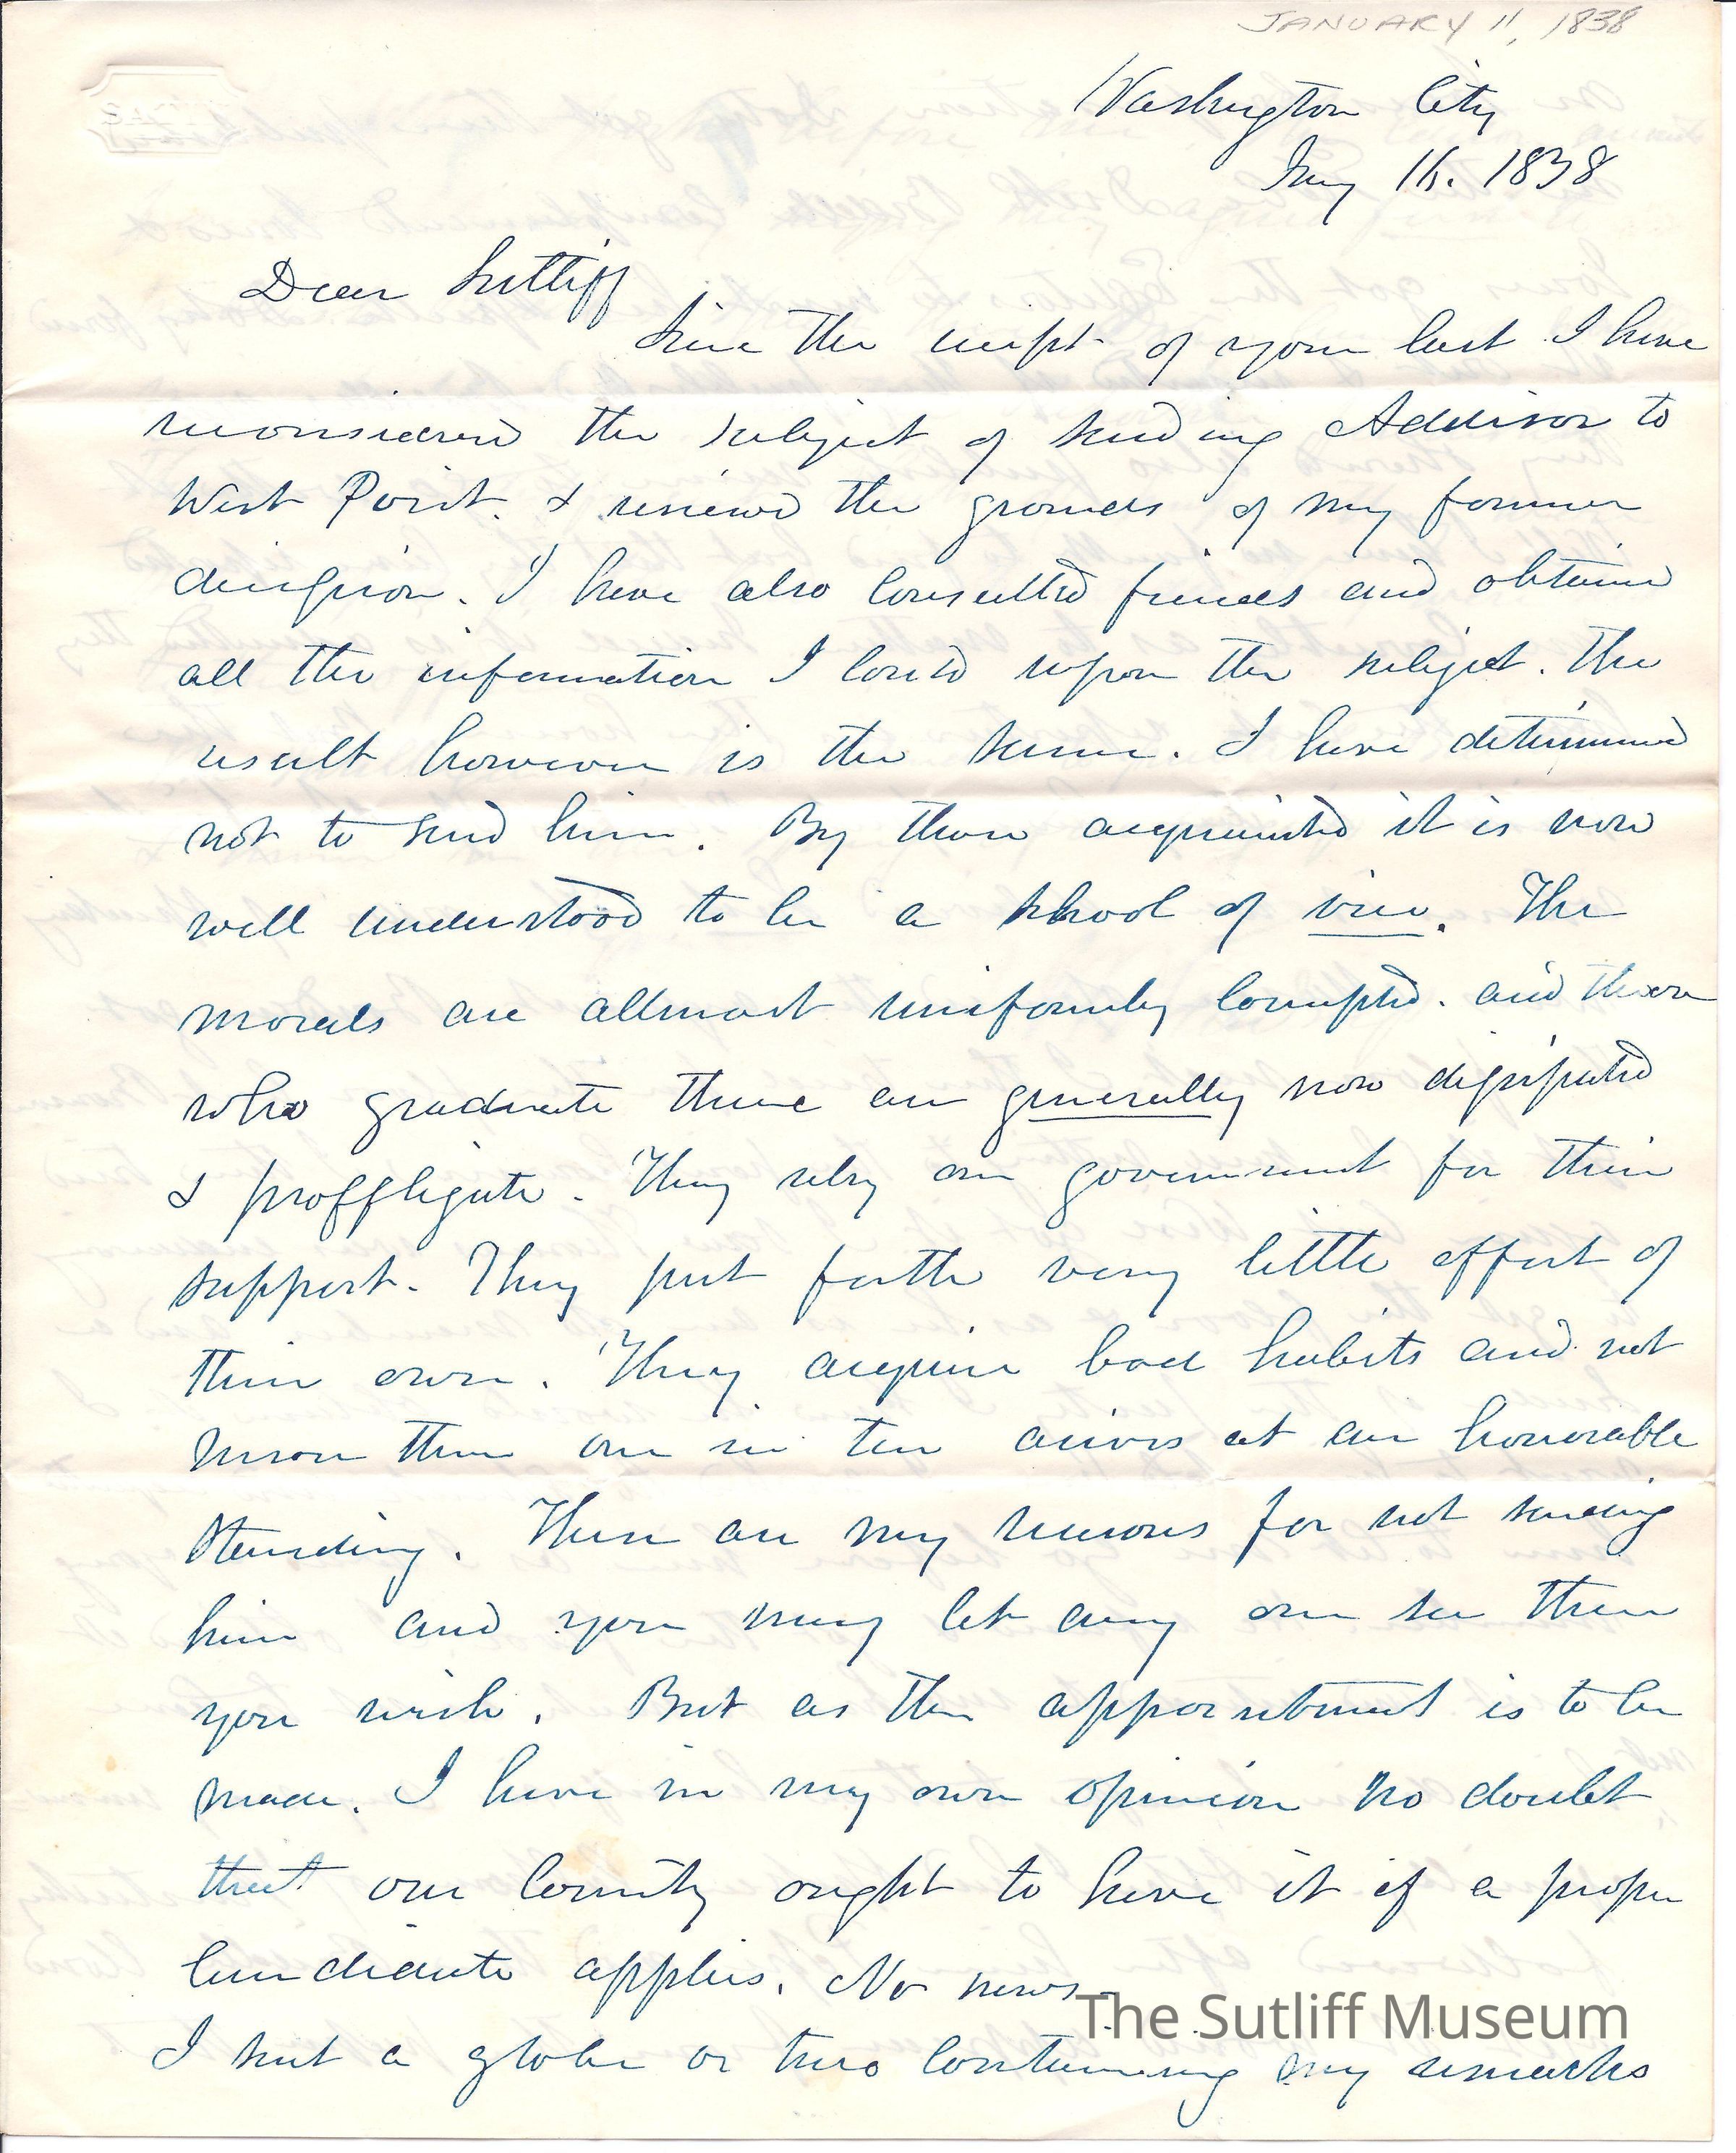 JANUARY 11, 1838
Washington City
Jany 16. 1838
Dear Sutliff
Since the reciept of your last I have
reconsidered the subject of sending Addison to
West Point. & reviewed the grounds of my former
decission. I have also consulted friends and obtained
all the information I could upon the subject. The
result however is the same. I have determined
not to send him. By those acquainted it is now
well understood to be a school of vice. The
morals are allmost uniformly corrupted. and those
who graduate there are generally now dissipated
& proffligate. They rely on government for their
support. They put forth very little effort of
their own. They acquire bad habits and not
more than one in ten arives at an honorable
standing. These are my reasons for not sending
him and you may let any one see them
you wish. But as the appointment is to be
made. I have in my own opinion no doubt
that our County ought to have it if a proper
candidate applies. No news.
The Sutliff Museum
I sent a globe or two containing my remarks